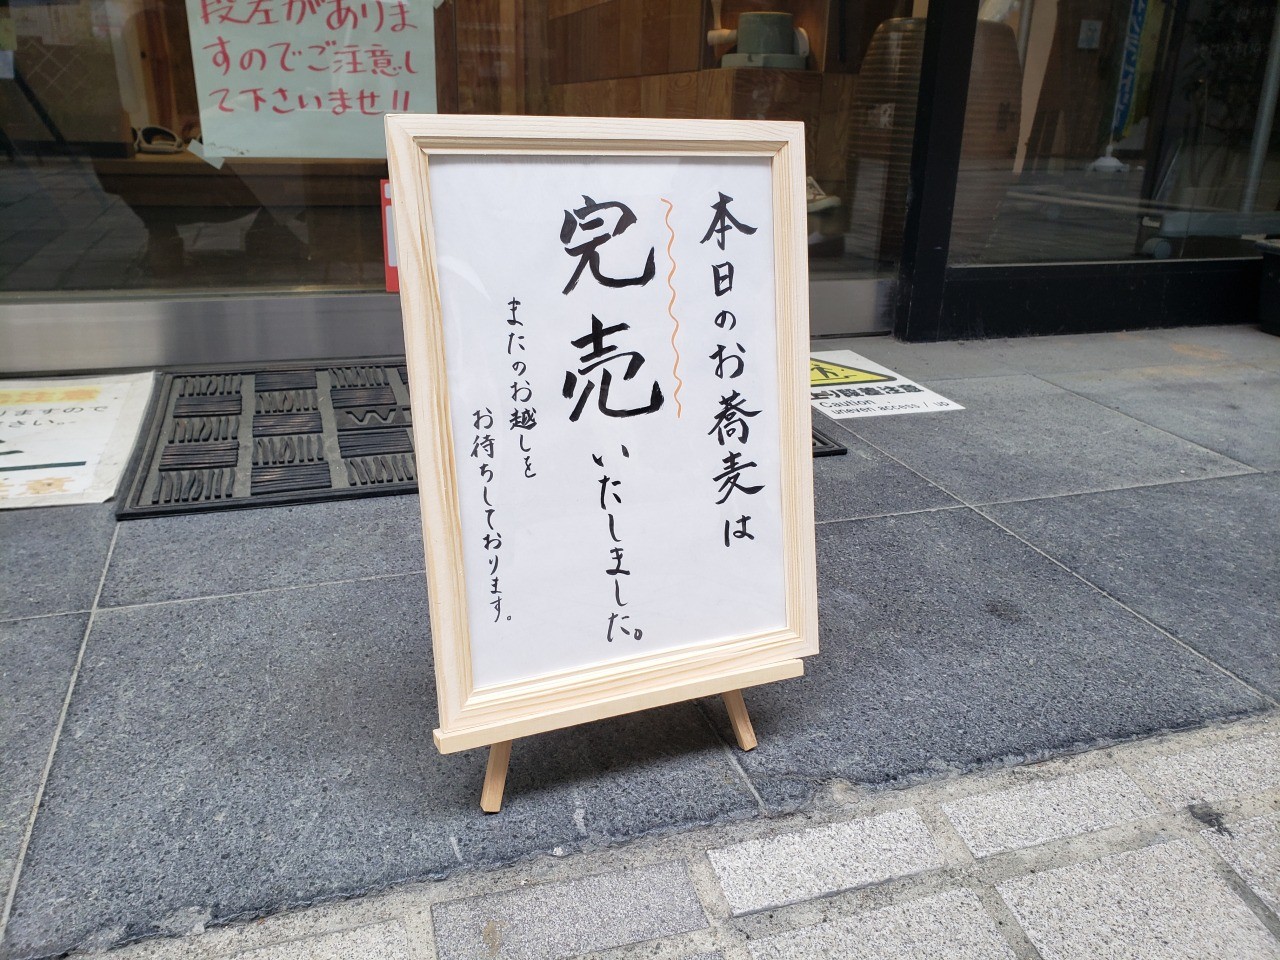 本日のお蕎麦は
完売いたしました。
またのお越しを
お待ちしております。
段差がありま
すのでご注意し
て下さいませ!!
りますので
さい。
段差注意
Caution
uneven access / up